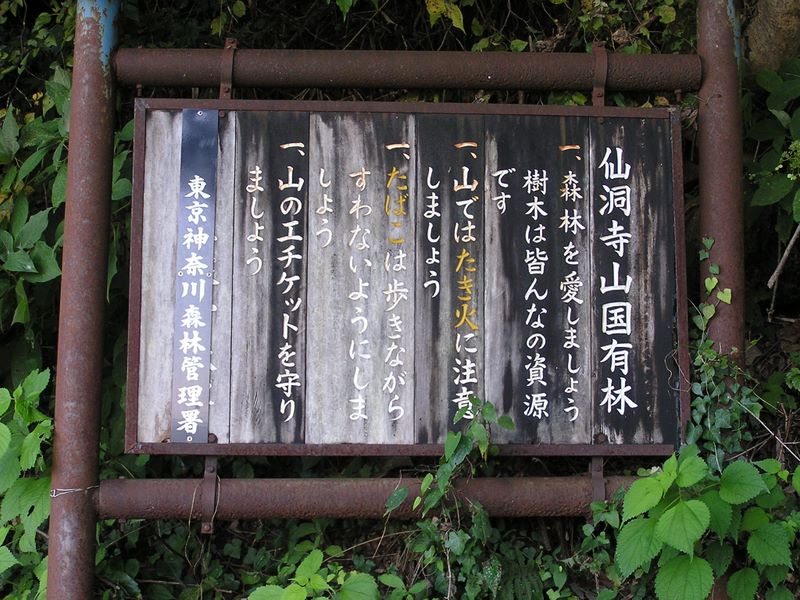 仙洞寺山国有林
一、森林を愛しましょう
樹木は皆んなの資源
です
一、山ではたき火に注意
しましょう
一、たばこは歩きながら
すわないようにしま
しょう
一、山のエチケットを守り
ましょう
東京神奈川森林管理署